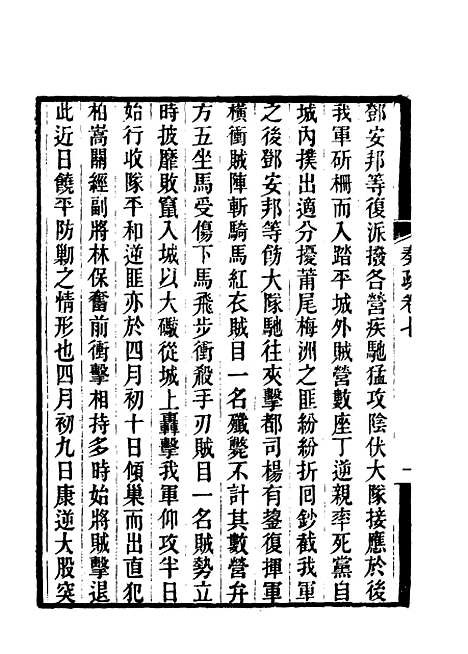 鄧安邦等復派撥各營疾馳猛攻陰伏大隊接應於後
我軍斫柵而入踏平城外賊營數座丁逆親率死黨自
城內撲出適分擾莆尾梅洲之匪紛紛折回鈔截我軍
之後鄧安邦等飭大隊馳往夾擊都司楊有鋆復揮軍
橫衝賊陣斬騎馬紅衣賊目一名殲斃不計其數營弁
方五坐馬受傷下馬飛步衝殺手刃賊目一名賊勢立
時披靡敗竄入城以大礮從城上轟擊我軍仰攻半日
始行收隊平和逆匪亦於四月初十日傾巢而出直犯
柏嵩關經副將林保奮前衝擊相持多時始將賊擊退
此近日饒平防勦之情形也四月初九日康逆大股突
奏疏卷七
一